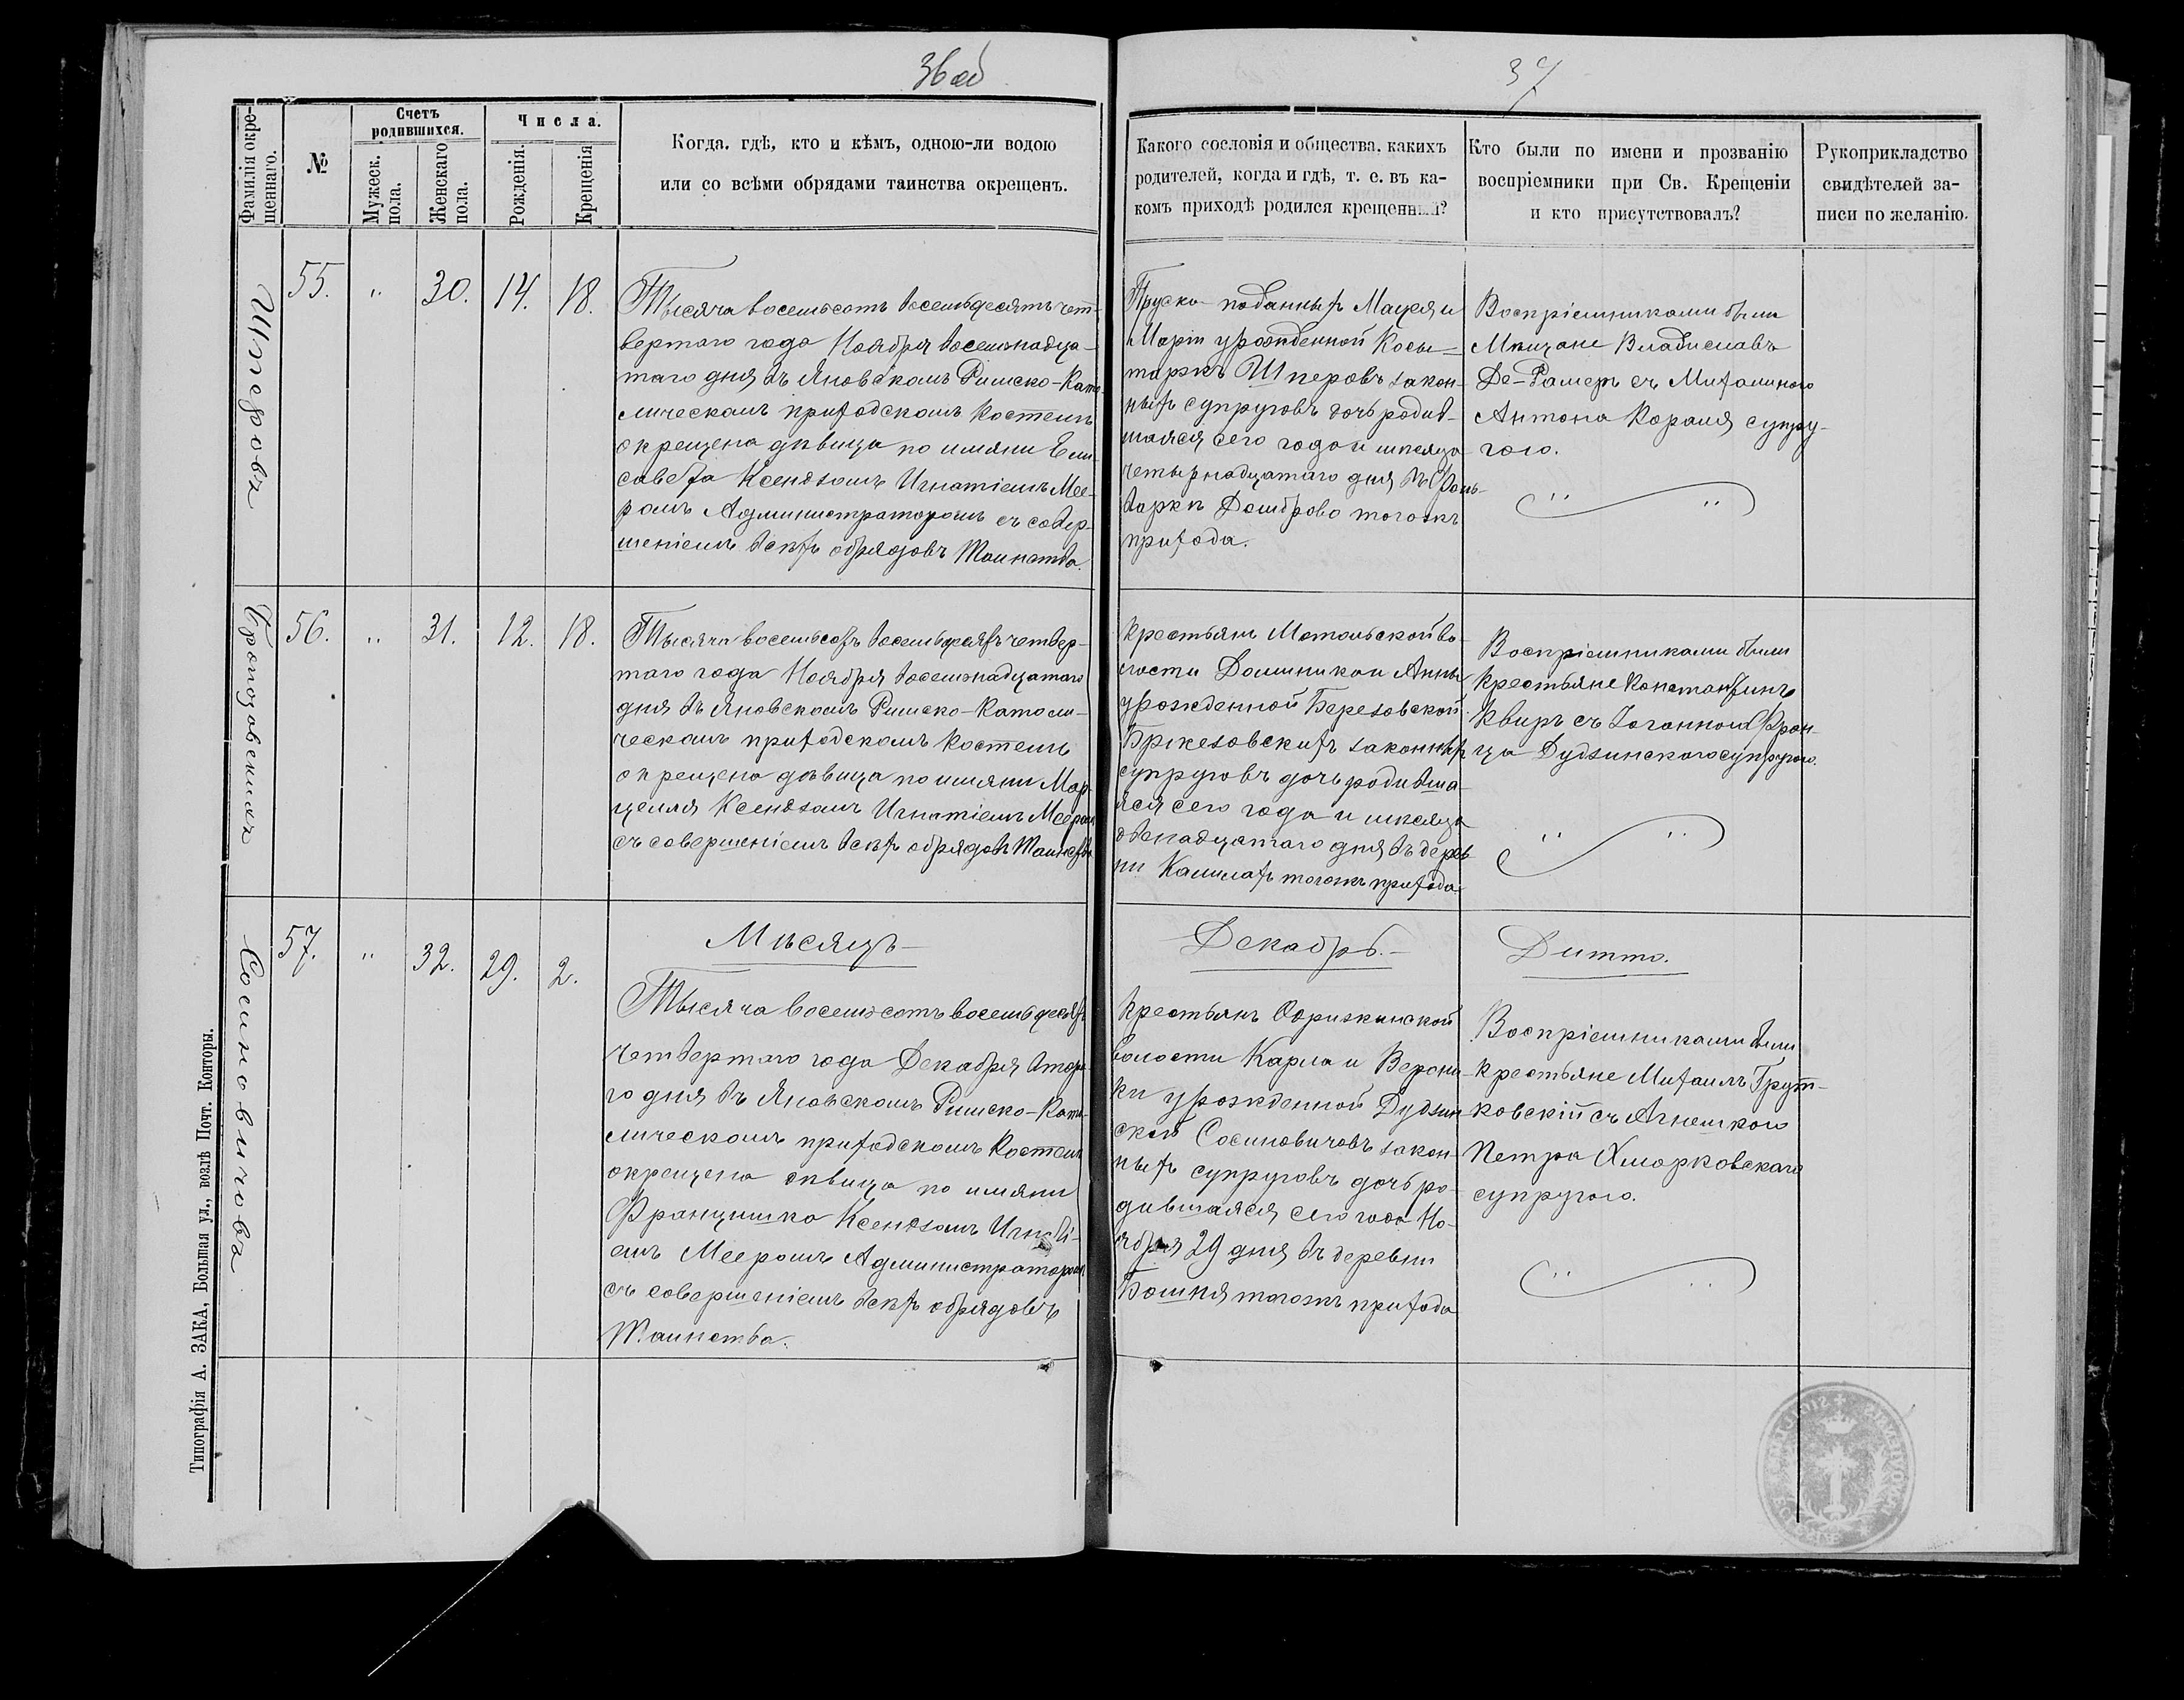 36 об
37
Фамилія окре-
щеннаго.
№
Счетъ
родившихся.
Мужеск.
пола.
Женскаго
пола.
Числа.
Рожденія.
Крещенія
Когда, гдѣ, кто и кѣмъ, одною-ли водою
или со всѣми обрядами таинства окрещенъ.
Какого сословія и общества, какихъ
родителей, когда и гдѣ, т. е. въ ка-
комъ приходѣ родился крещенный?
Кто были по имени и прозванію
воспріемники при Св. Крещеніи
и кто присутствовалъ?
Рукоприкладство
свидѣтелей за-
писи по желанію.
Шперовъ
55.
"
30.
14.
18.
Тысяча восемьсотъ восемьдесятъ чет-
вертаго года Ноября восемнадца-
таго дня въ Яновскомъ Римско-Като-
лическомъ приходскомъ Костелѣ
окрещена дѣвица по имяни Ели-
савета Ксендзомъ Игнатіемъ Мее-
ромъ Администраторомъ съ совер-
шеніемъ всѣхъ обрядовъ Таинства.
Пруско-поданныхъ Мацея и
Маріи урожденной Косы-
таржъ Шперовъ закон-
ныхъ супруговъ дочь родив-
шаяся сего года и мѣсяца
четырнадцатаго дня въ Фоль-
варкѣ Домброво тогожъ
прихода.
Воспріемниками были
Мѣщане Владиславъ
Де-Рамеръ съ Михалиною
Антона Короля супру-
гою.
56.
"
31.
12.
18.
Тысяча восемьсотъ восемьдесятъ четвер-
таго года Ноября восемнадцатаго
дня въ Яновскомъ Римско-Католи-
ческомъ приходскомъ Костелѣ
окрещена дѣвица по имяни Мар-
целля Ксендзомъ Игнатіемъ Мееромъ
съ совершеніемъ всѣхъ обрядовъ Таинства
Крестьянъ Мотольской во-
лости Доминика и Анны
урожденной Березовской
Бржезовскихъ законныхъ
супруговъ дочь родивша-
яся сего года и мѣсяца
двенадцатаго дня въ дерев-
ни тогожъ прихода
Воспріемниками были
Крестьяне Константинъ
Квиръ съ Іоганною Фран-
ца Дудзинского супругою.
Сосиновичовъ
57.
"
32.
29.
2.
Мѣсяцъ
Декабрь.
Дитто.
Тысяча восемьсотъ восемьдесятъ
четвертаго года Декабря втора-
го дня въ Яновскомъ Римско-Като-
лическомъ приходскомъ Костелѣ
окрещена дѣвица по имяни
Францишка Ксендзомъ Игнаті-
емъ Мееромъ Администраторомъ
съ совершеніемъ всѣхъ обрядовъ
Таинства.
Крестьянъ Одрижинской
волости Карла и Верони-
ки урожденной Дудзин-
ской Сосиновичовъ закон-
ныхъ супруговъ дочь ро-
дившаяся сего года Но-
ября 29 дня въ деревни
тогожъ прихода
Воспріемниками были
крестьяне Михаилъ Грут-
ковскій съ Агнешкою
Петра Хмарковскаго
супругою.
Типографія А. ЗАКА, Большая ул., возлѣ Почт. Конторы.